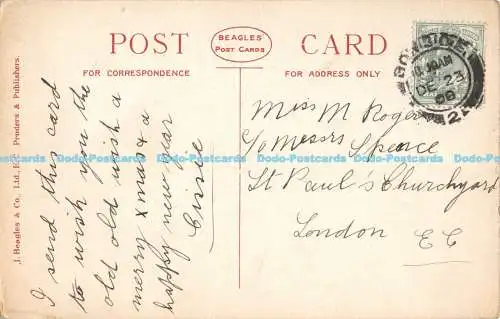 POST
BEAGLES'
POST CARDS
CARD
FOR CORRESPONDENCE
FOR ADDRESS ONLY
J. Beagles & Co., Ltd., E.C., Printers & Publishers.
I send this card
to wish you the
old old wish a
merry Xmas & a
happy new year
Cissie
10 AM
DE 23
08
Miss M Rogers
C/o Messrs Spence
St Paul's Churchyard
London E C
Dodo-Postcards Dodo-Postcards Dodo-Postcards Dodo-Postcards Dodo-Postcards